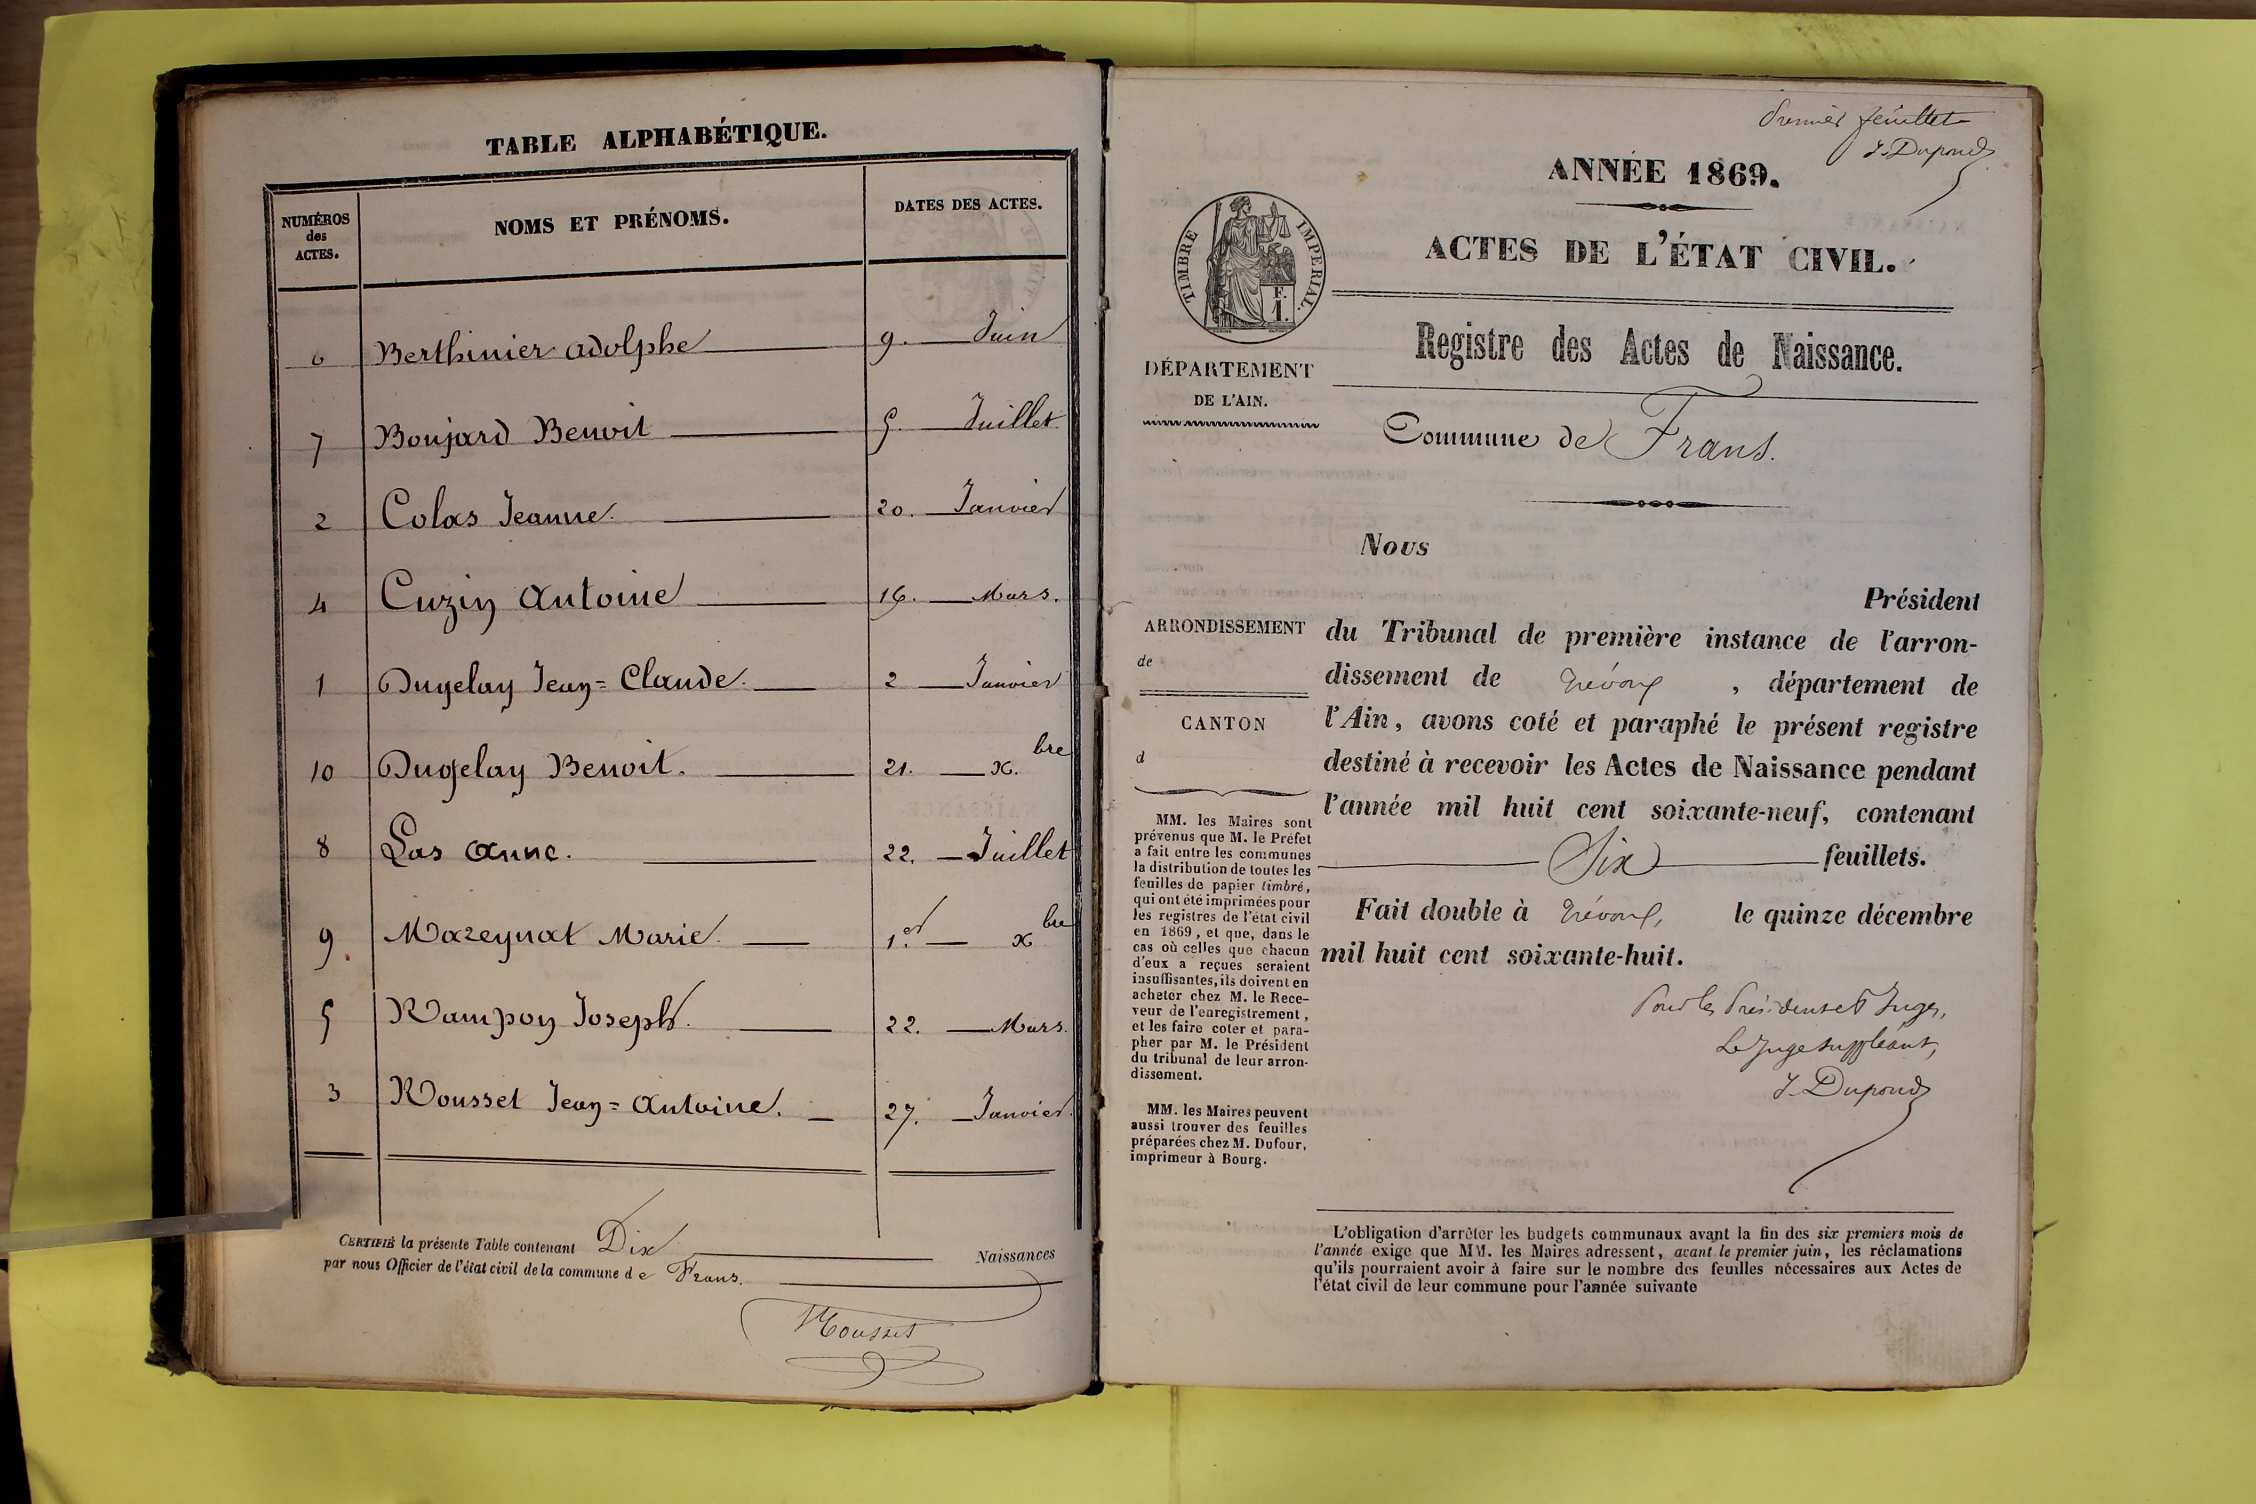 TABLE ALPHABÉTIQUE.
NUMÉROS
des
ACTES.
NOMS ET PRÉNOMS.
DATES DES ACTES.
6 Berthinier adolphe 9. Juin
7 Boujard Benoit 5. Juillet
2 Colas Jeanne. 20. Janvier
4 Cuzin Antoine 16. Mars.
1 Dugelay Jean=Claude. 2 Janvier
10 Dugelay Benoit. 21. x.bre
8 Las Anne. 22. Juillet
9. Mazeynat Marie. 1.er xbre
5 Rampon Joseph. 22. Mars.
3 Rousset Jean=Antoine. 27. Janvier.
CERTIFIÉ la présente Table contenant Dix Naissances
par nous Officier de l'état civil de la commune de Frans.
Rousset
Premier feuillet
J. Dupond
ANNÉE 1869.
TIMBRE IMPERIAL.
F.
1.
ACTES DE L'ÉTAT CIVIL.
Registre des Actes de Naissance.
DÉPARTEMENT
DE L'AIN.
Commune de Frans.
ARRONDISSEMENT
de
CANTON
d
MM. les Maires sont
prévenus que M. le Préfet
a fait entre les communes
la distribution de toutes les
feuilles de papier timbré,
qui ont été imprimées pour
les registres de l'état civil
en 1869, et que, dans le
cas où celles que chacun
d'eux a reçues seraient
insuffisantes, ils doivent en
acheter chez M. le Rece-
veur de l'enregistrement,
et les faire coter et para-
pher par M. le Président
du tribunal de leur arron-
dissement.
MM. les Maires peuvent
aussi trouver des feuilles
préparées chez M. Dufour,
imprimeur à Bourg.
Nous
Président
du Tribunal de première instance de l'arron-
dissement de Trévoux, département de
l'Ain, avons coté et paraphé le présent registre
destiné à recevoir les Actes de Naissance pendant
l'année mil huit cent soixante-neuf, contenant
Six feuillets.
Fait double à Trévoux, le quinze décembre
mil huit cent soixante-huit.
Pour les Président et Juges,
Le Juge suppléant,
J. Dupond
L'obligation d'arrêter les budgets communaux avant la fin des six premiers mois de
l'année exige que MM. les Maires adressent, avant le premier juin, les réclamations
qu'ils pourraient avoir à faire sur le nombre des feuilles nécessaires aux Actes de
l'état civil de leur commune pour l'année suivante